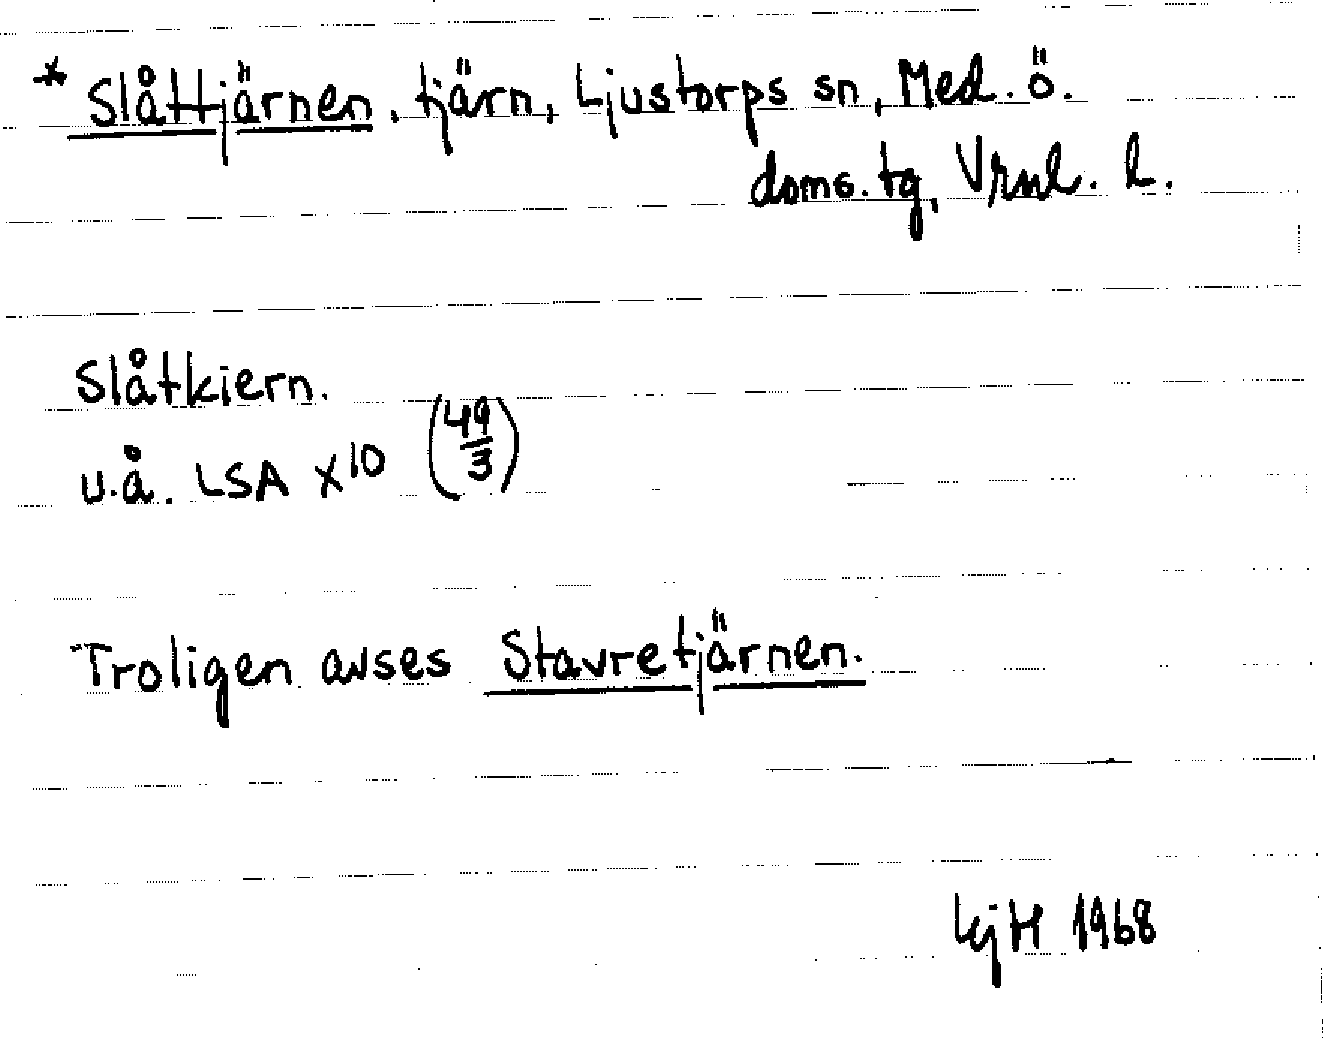 * Slåttjärnen, tjärn, Ljustorps sn, Med. ö.
doms. tg, Vrnl. l.
Slåtkiern.
u.å. LSA X10 (49/3)
Troligen avses Stavretjärnen.
LjH 1968